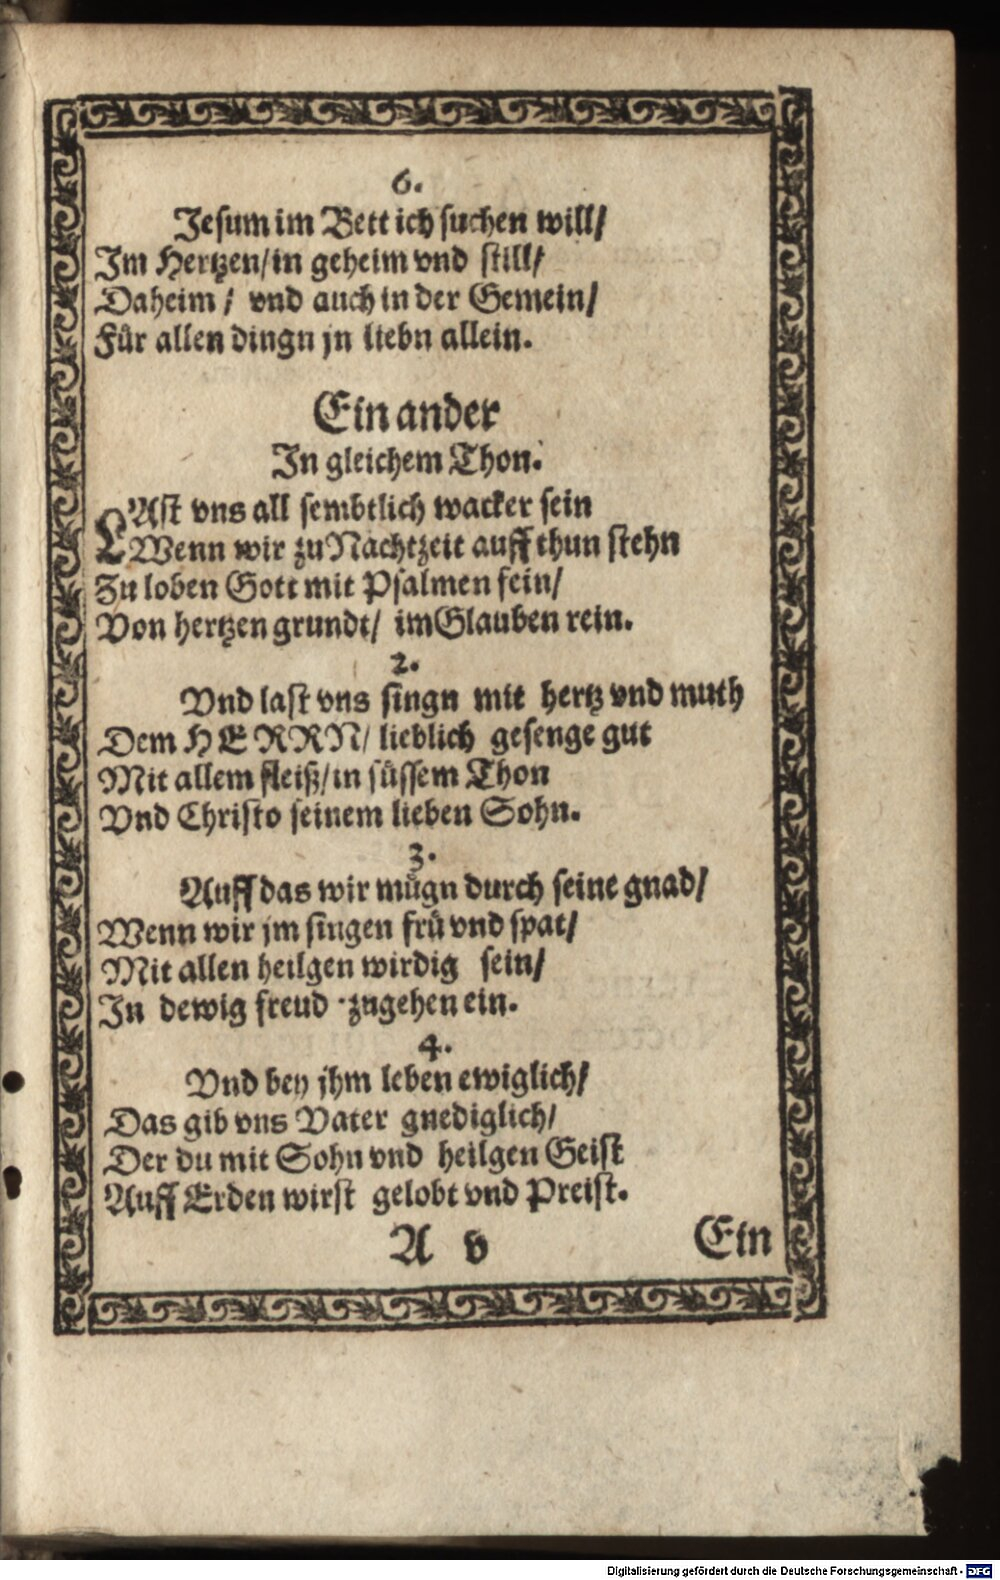 6.
Jesum im Bett ich suchen will/
Im Hertzen/in geheim vnd still/
Daheim/ vnd auch in der Gemein/
Für allen dingn jn liebn allein.
Ein ander
In gleichem Thon.
LAst vns all sembtlich wacker sein
Wenn wir zu Nachtzeit auff thun stehn
Zu loben Gott mit Psalmen fein/
Von hertzen grundt/ im Glauben rein.
2.
Vnd last vns singn mit hertz vnd muth
Dem HERRN/ lieblich gesenge gut
Mit allem fleiß/in süssem Thon
Vnd Christo seinem lieben Sohn.
3.
Auff das wir mügn durch seine gnad/
Wenn wir jm singen frü vnd spat/
Mit allen heilgen wirdig sein/
In dewig freud zugehen ein.
4.
Vnd bey jhm leben ewiglich/
Das gib vns Vater gnediglich/
Der du mit Sohn vnd heilgen Geist
Auff Erden wirst gelobt vnd Preist.
A v
Ein
Digitalisierung gefördert durch die Deutsche Forschungsgemeinschaft - DFG